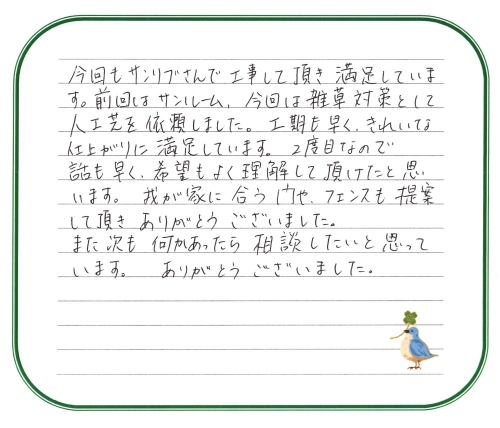 今回もサンリブさんで工事して頂き満足していま
す。前回はサンルーム、今回は雑草対策として
人工芝を依頼しました。工期も早く、きれいな
仕上がりに満足しています。2度目なので
話も早く、希望もよく理解して頂けたと思
います。我が家に合う門や、フェンスも提案
して頂きありがとうございました。
また次も何かあったら相談したいと思って
います。ありがとうございました。